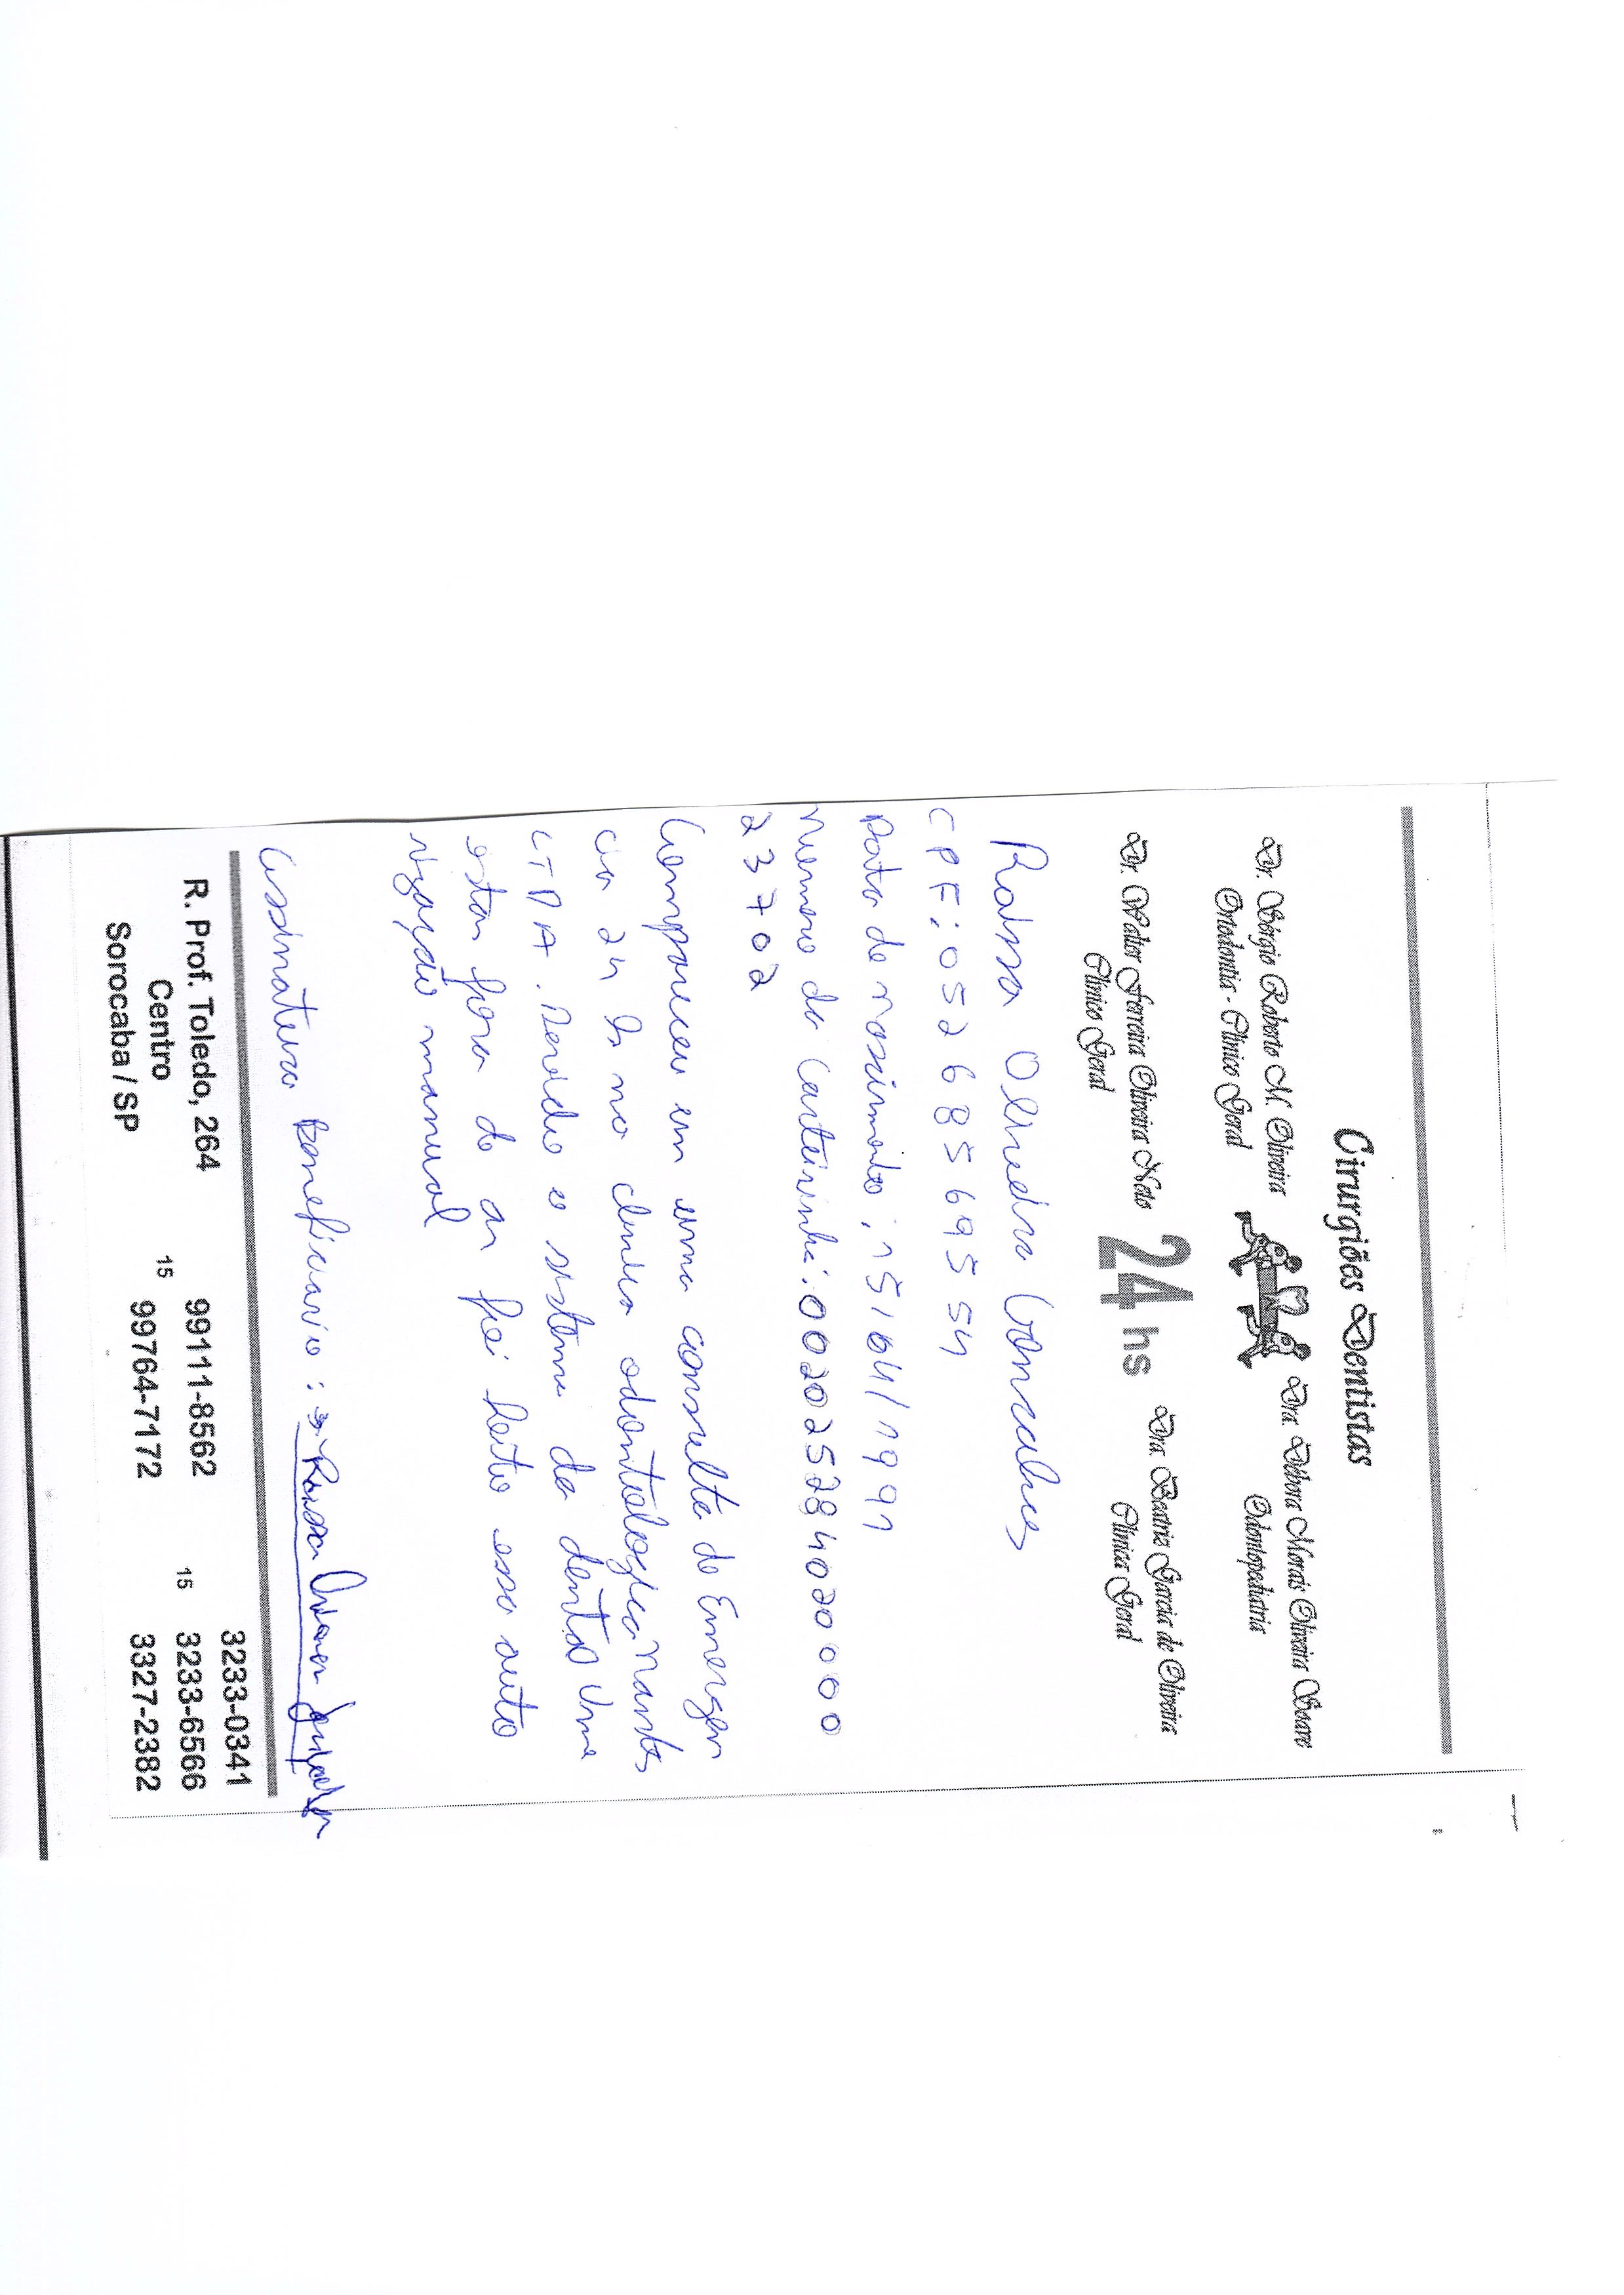 Cirurgiões Dentistas
Dr. Sérgio Roberto M. Oliveira
Ortodontia - Clínico Geral
Dra. Débora Morais Oliveira Soave
Odontopediatria
Dr. Walter Ferreira Oliveira Neto
Clínico Geral
24 hs
Dra. Beatriz Garcia de Oliveira
Clínica Geral
Raissa Gonsalves
CPF: 05268569554
Data de nascimento: 15/04/1991
Numero da Carteirinha: 00202528402000
23702
Compareceu em uma consulta de Emergen
cia 24 hs na clinica odontologica Nantes
LTDA. Devido o sistema da dental Une
estar fora do ar foi feito essa auto
rização manual
Assinatura beneficiario:
R. Prof. Toledo, 264
Centro
Sorocaba / SP
15 99111-8562
99764-7172
3233-0341
15 3233-6566
3327-2382